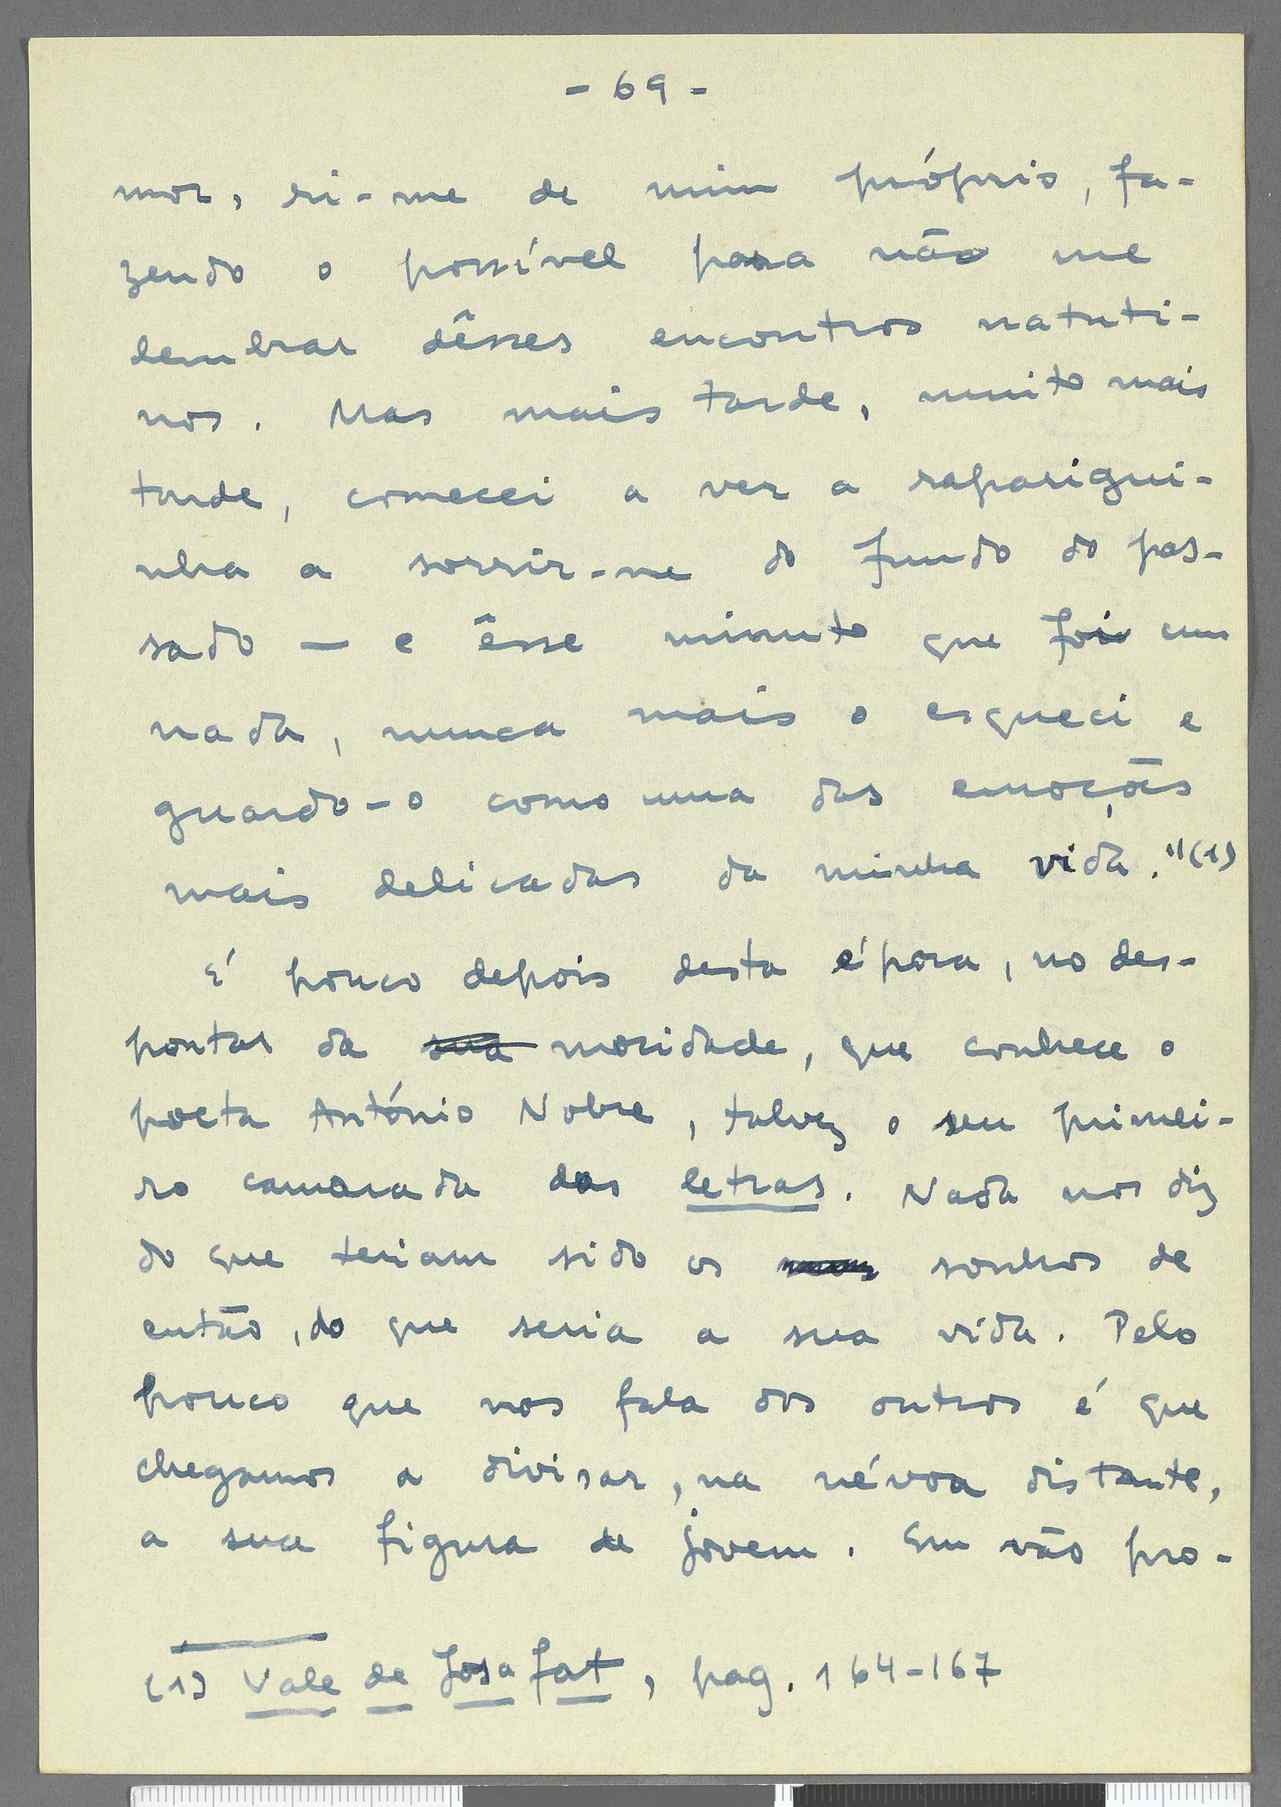 - 69 -
mor, ri-me de mim próprio, fa-
zendo o possível para não me
lembrar dêsses encontros natuti-
nos. Mas mais tarde, muito mais
tarde, comecei a ver a raparigui-
nha a sorrir-me do fundo do pas-
sado — e êsse minuto que foi um
nada, nunca mais o esqueci e
guardo-o como uma das emoções
mais delicadas da minha vida." (1)
É pouco depois desta época, no des-
pontar da sua mocidade, que conhece o
poeta António Nobre, talvez o seu primei-
ro camarada das letras. Nada nos diz
do que teriam sido os sonhos de
então, do que seria a sua vida. Pelo
pouco que nos fala dos outros é que
chegamos a divisar, na névoa distante,
a sua figura de jovem. Em vão pro-
(1) Vale de Josafat, pag. 164-167